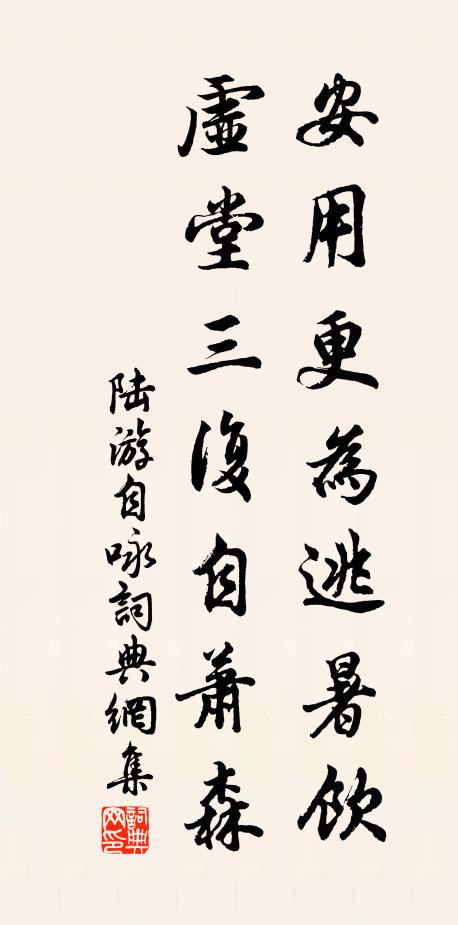 安用更為逃暑飲
虛堂三復自蕭森
陆游自咏詞典網集
詞典网印